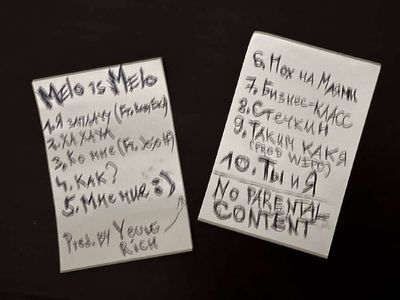 Melo is Melo
1. Я заплачу (Ft.
2. ХА ХАЧА
3. Ко мне (Ft.
4. КАК?
5. Мне ние :)
Prod. BY YOUNG RICH
6. Нох на Маями
7. Бизнес-КЛАСС
8. Стечкин
9. ТАКИМ КАК Я
(PROD WEPO)
10. ТЫ и Я
NO PARENTAL
CONTENT